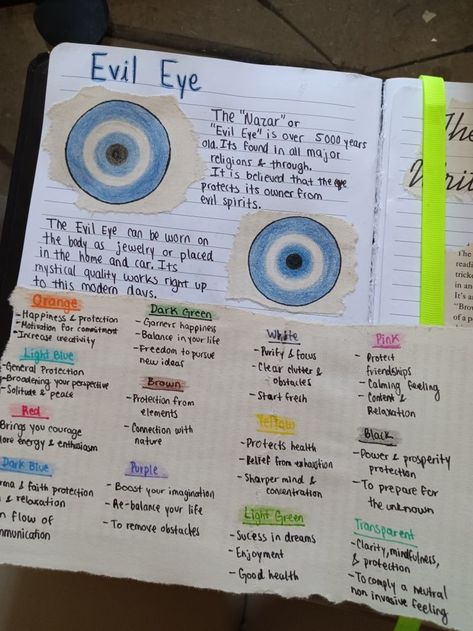 Evil Eye
The "Nazar" or
"Evil Eye" is over 5000 years
old. Its found in all major
religions & through.
It is believed that the eye
protects its owner from
evil spirits.
The Evil Eye can be worn on
the body as jewelry or placed
in the home and car. Its
mystical quality works right up
to this modern days.
Orange
- Happiness & protection
- Motivation for commitment
- Increase creativity
Light Blue
- General Protection
- Broadening your perspective
- Solitude & peace
Red
Brings you courage
energy & enthusiasm
Dark Blue
& faith protection
& relaxation
flow of
Dark Green
- Garners happiness
- Balance in your life
- Freedom to pursue
new ideas
Brown
- Protection from
elements
- Connection with
nature
Purple
- Boost your imagination
- Re-balance your life
- To remove obstacles
White
- Purity & focus
- Clear clutter &
obstacles
- Start fresh
Yellow
- Protects health
- Relief from exhaustion
- Sharper mind &
concentration
Light Green
- Sucess in dreams
- Enjoyment
- Good health
Pink
- Protect
friendships
- Calming feeling
- Content &
Relaxation
Black
- Power & prosperity
protection
- To prepare for
the unknown
Transparent
- Clarity, mindfulness,
& protection
- To comply a neutral
non invasive feeling
The